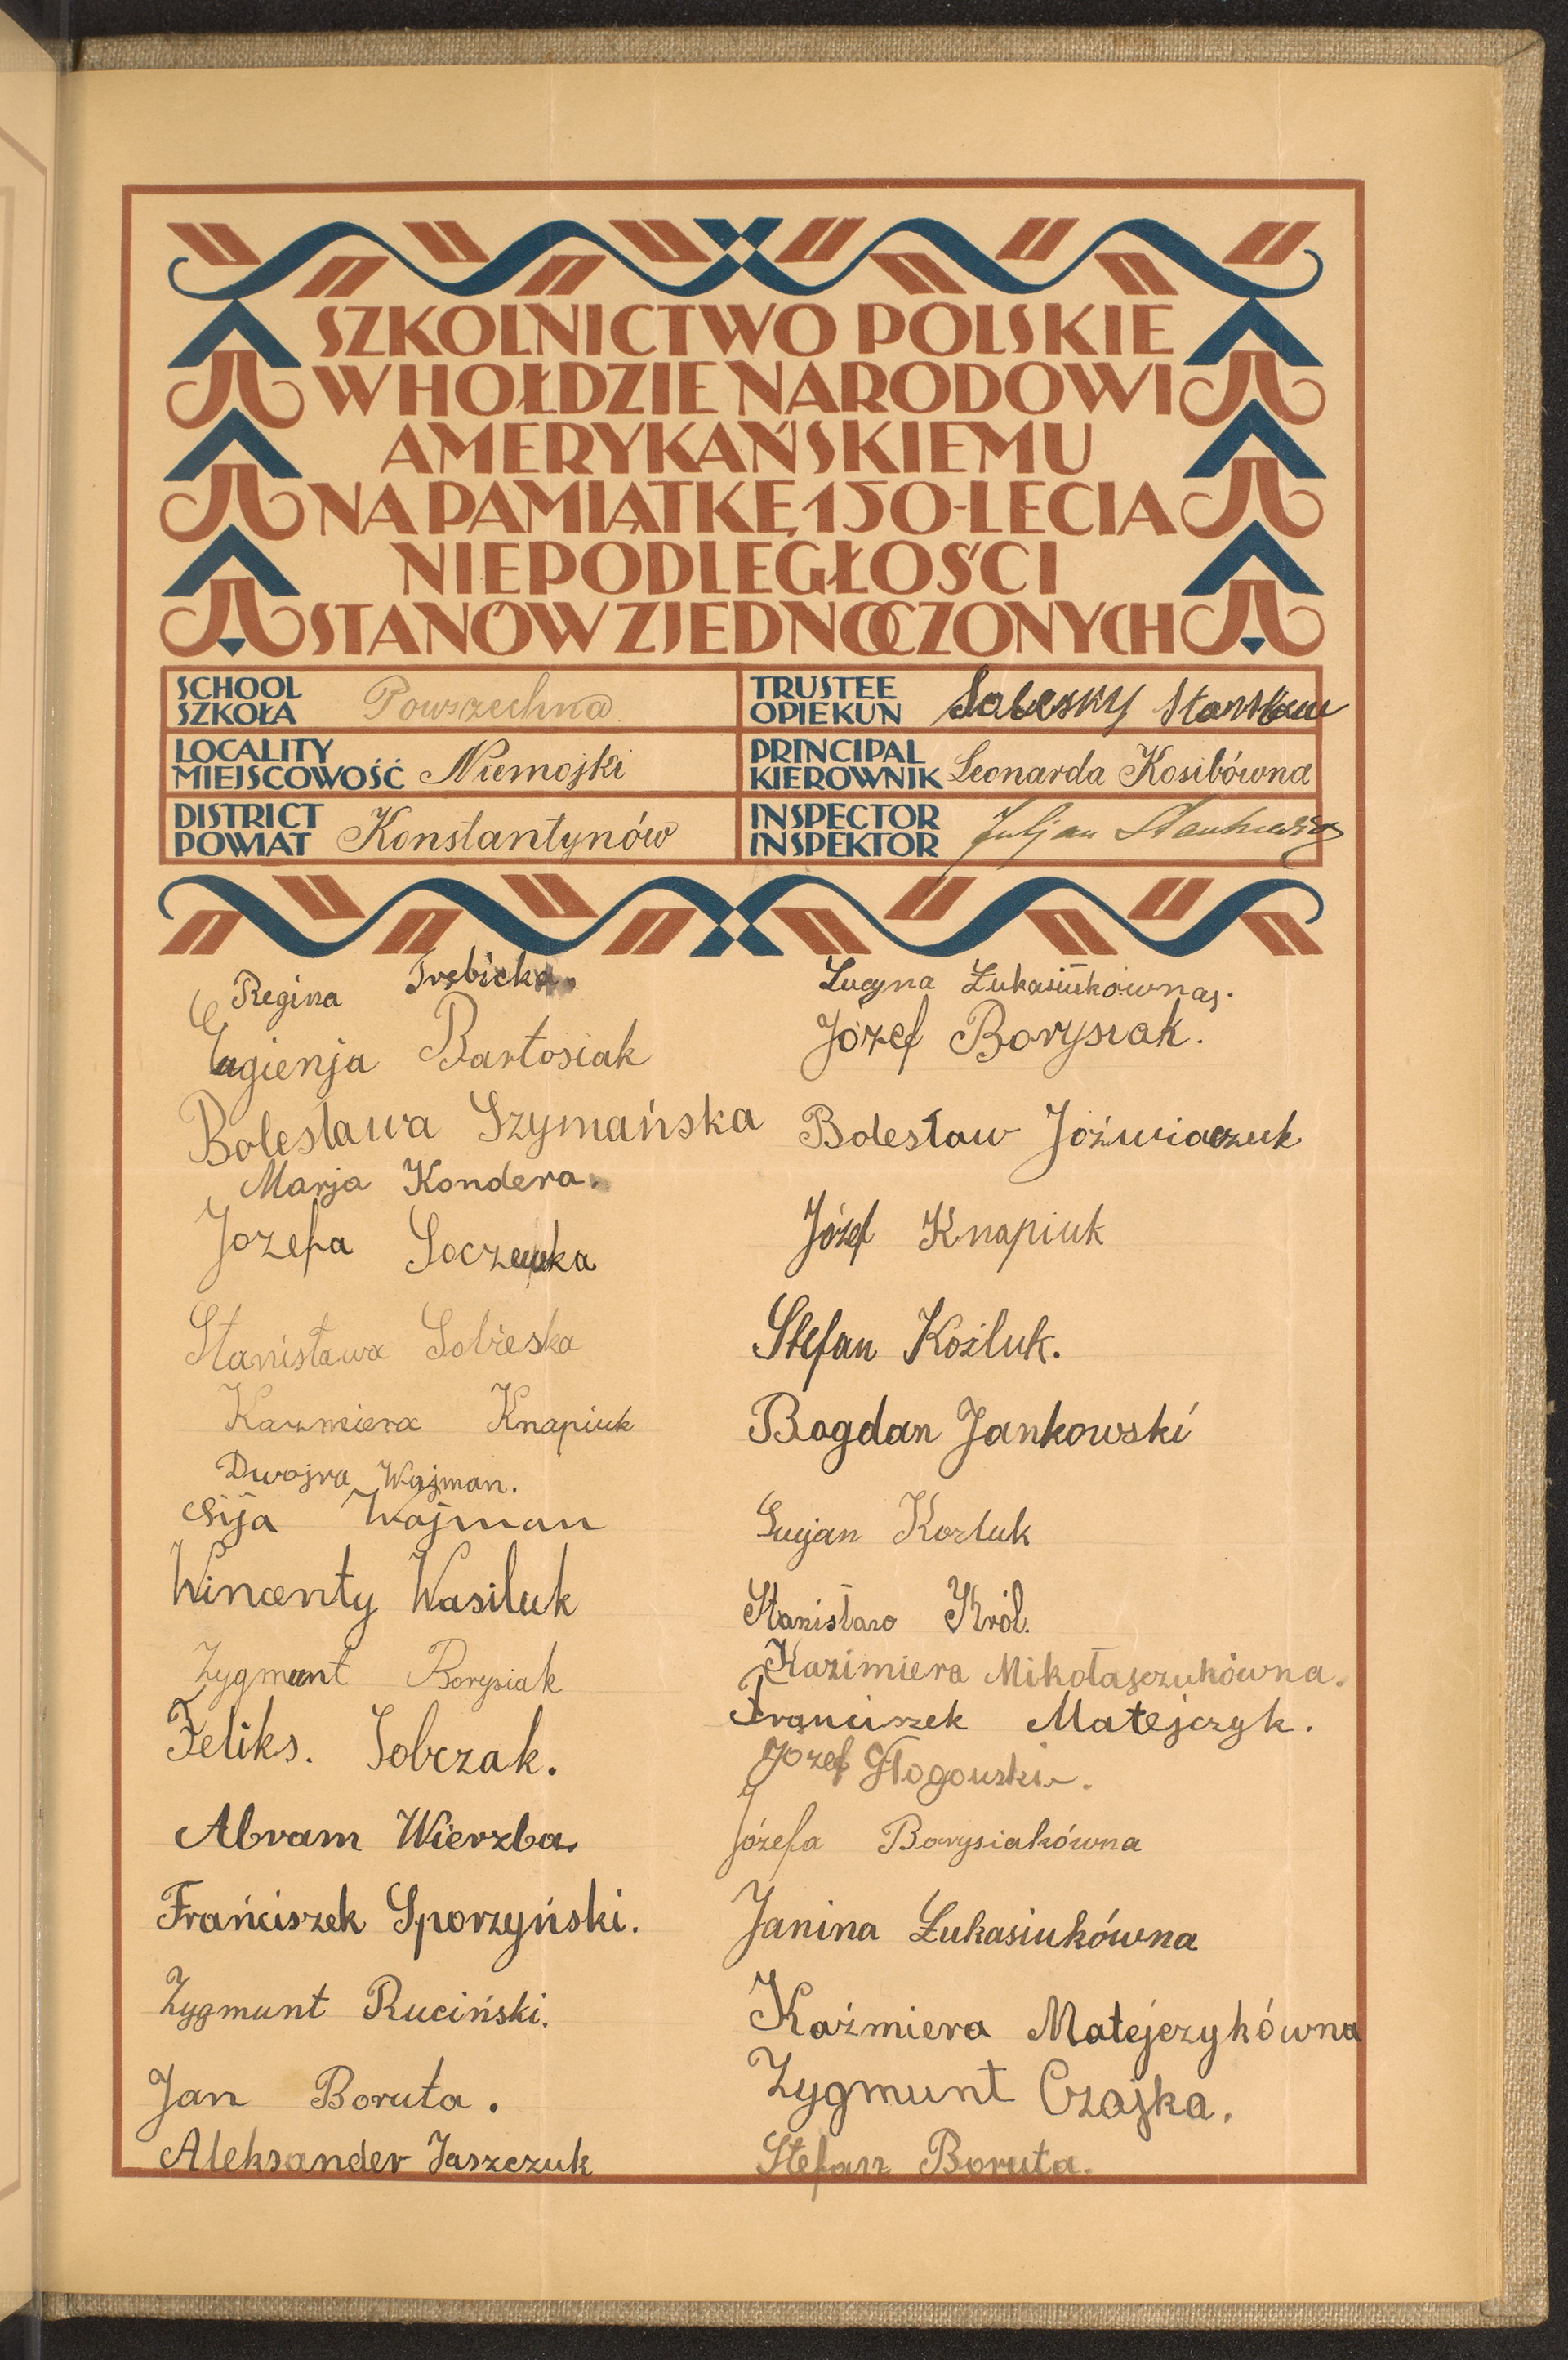 SZKOLNICTWO POLSKIE
W HOŁDZIE NARODOWI
AMERYKAŃSKIEMU
NA PAMIĄTKĘ 150-LECIA
NIEPODLEGŁOŚCI
STANÓW ZJEDNOCZONYCH
SCHOOL
SZKOŁA Powszechna
TRUSTEE
OPIEKUN Sobesky Stanisław
LOCALITY
MIEJSCOWOŚĆ Niemojki
PRINCIPAL
KIEROWNIK Leonarda Kosibówna
DISTRICT
POWIAT Konstantynów
INSPECTOR
INSPEKTOR Juljan
Regina Trębicka.
Eugienja Bartosiak
Bolesława Szymańska
Marja Kondera.
Jozefa Soczewka
Stanisława Sobieska
Kazmiera Knapiuk
Dwojra Wajman.
Sija Wajman
Wincenty Wasiluk
Zygmunt Borysiak
Feliks. Sobczak.
Abram Wierzba.
Frańciszek Sporzyński.
Zygmunt Ruciński.
Jan Boruta.
Aleksander Jaszczuk
Lucyna Łukasiukówna.
Józef Borysiak.
Bolesław Jóźwiaczuk
Józef Knapiuk
Stefan Koźluk.
Bogdan Jankowski
Lucjan Kozluk
Stanisław Król.
Kazimiera Mikołajczukówna.
Franciszek Matejczyk.
Józef Głogowski.
Józefa Borysiakówna
Janina Łukasiukówna
Kaźmiera Matejczykówna
Zygmunt Czajka.
Stefan Boruta.